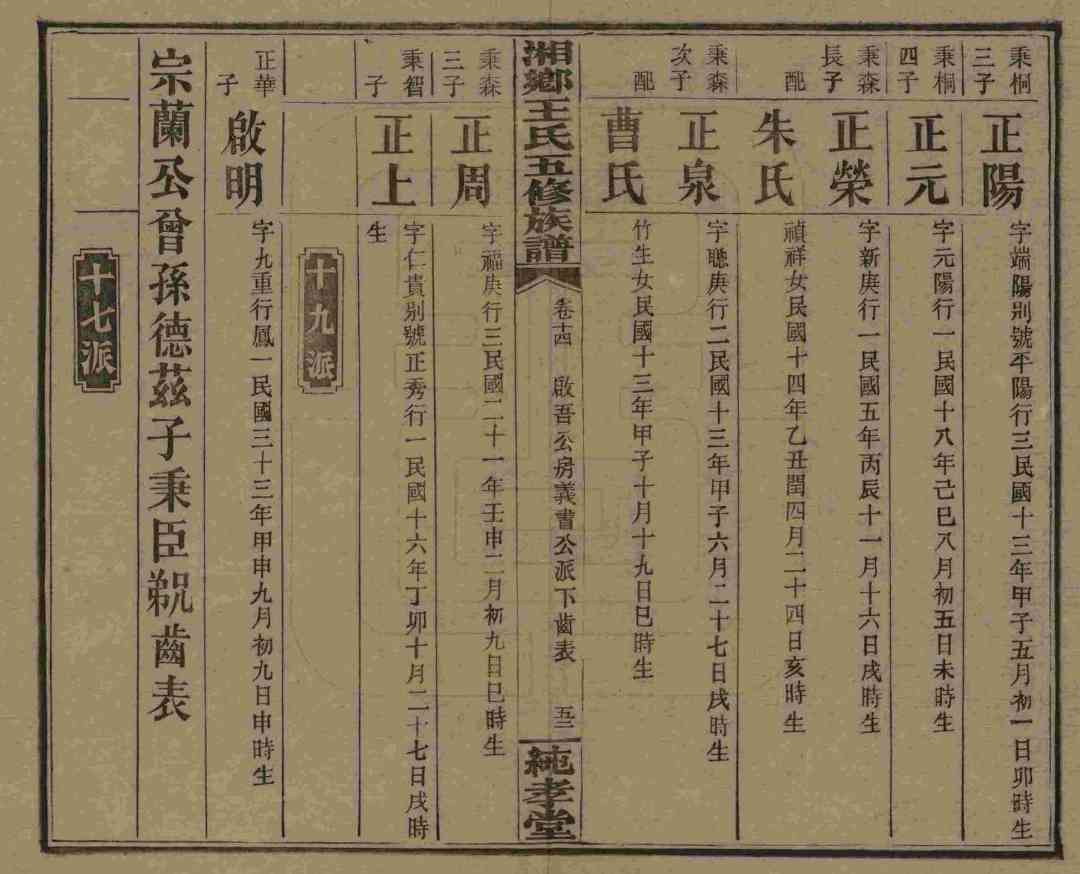 秉桐三子
正陽
字端陽別號平陽行三民國十三年甲子五月初一日卯時生
秉桐四子
正元
字元陽行一民國十八年己巳八月初五日未時生
秉森長子
正榮
字新庚行一民國五年丙辰十一月十六日戌時生
配
朱氏
禎祥女民國十四年乙丑閏四月二十四日亥時生
秉森次子
正泉
字聰庚行二民國十三年甲子六月二十七日戌時生
配
曹氏
竹生女民國十三年甲子十月十九日巳時生
湘鄉王氏五修族譜
卷十四 啟吾公房義書公派下齒表 五二
純孝堂
秉森三子
正周
字福庚行三民國二十一年壬申二月初九日巳時生
秉智子
正上
字仁貴別號正秀行一民國十六年丁卯十月二十七日戌時生
十九派
正華子
啟明
字九重行鳳一民國三十三年甲申九月初九日申時生
宗蘭公曾孫德茲子秉臣貎齒表
十七派